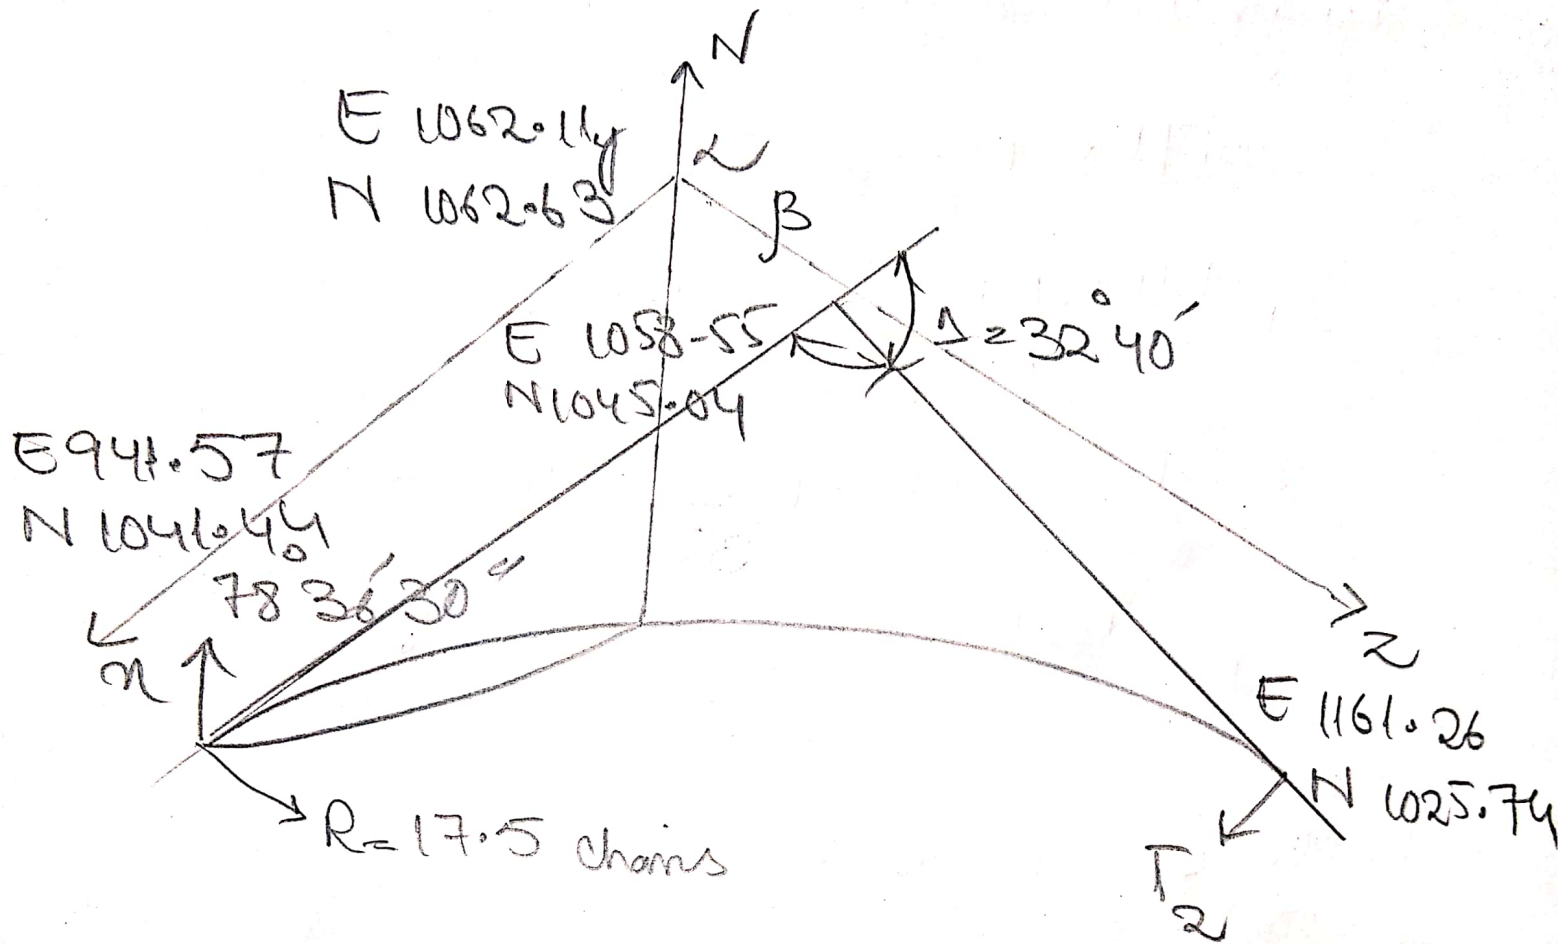 N
E 1062.11y
N 1062.63
α
β
E 1058-55
N1045.04
Δ=32°40'
E941.57
N 1041.44
78°36'30"
x
z
E 1161.26
N 1025.74
R=17.5 chains
T2